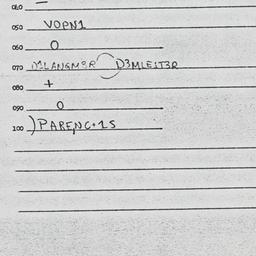 040 —
050 VOPN1
060 O
070 D3MLE1T3R
080 +
090 O
100 )PARENC+1S